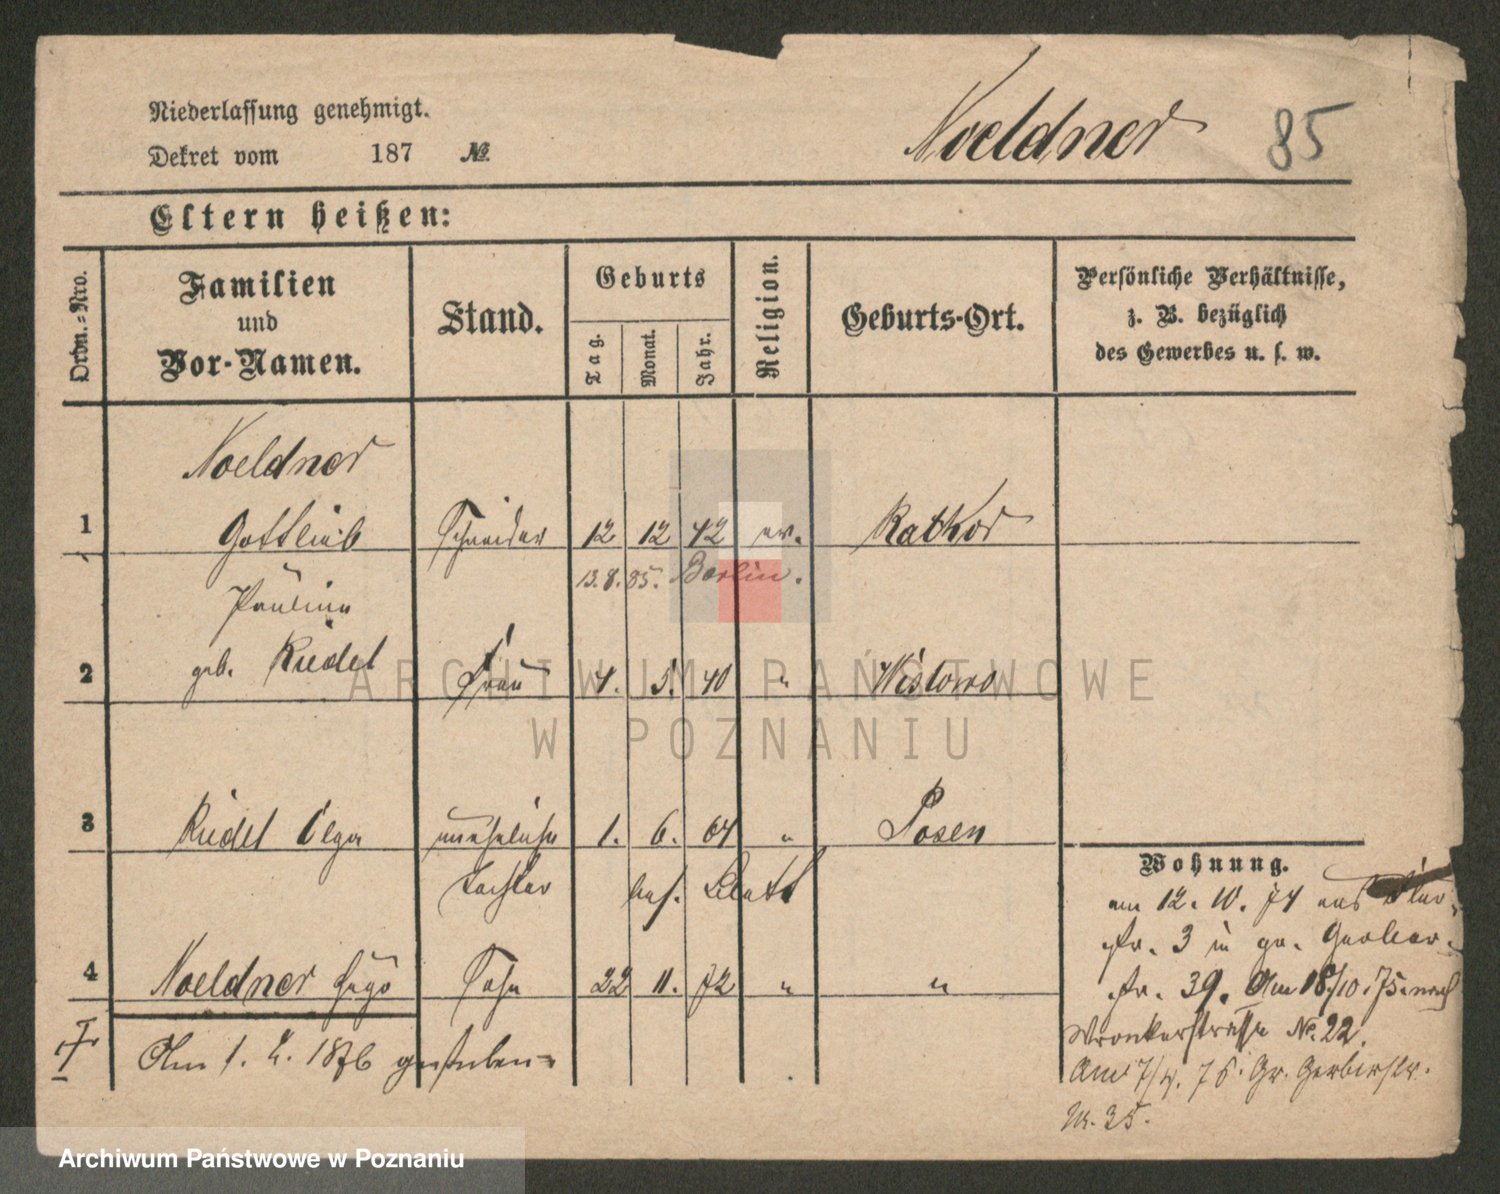 Niederlassung genehmigt.
Dekret vom 187 №
Noeldner 85
Eltern heißen:
Ordn.-Nro.
Familien
und
Vor-Namen.
Stand.
Geburts
Tag.
Monat.
Jahr.
Religion.
Geburts-Ort.
Persönliche Verhältnisse,
z. B. bezüglich
des Gewerbes u. s. w.
Noeldner
1 Gottlieb Schneider 12 12 42 ev. Ratkor
13.8.85. Berlin.
Pauline
2 geb. Riedel Frau 4. 5. 40 " Wistowo
3 Riedel Olga uneheliche 1. 6. 64 " Posen
Tochter bes. Blatt
4 Noeldner Hugo Sohn 22 11. 72 " "
Am 1. 2. 1876 gestorben
Wohnung.
am 12. 10. 74 aus
str. 3 in gr. Gerber-
str. 39. Am 18/10.75. nach
Wronkerstrasse No. 22.
Am 7/4. 76. Gr. Gerberstr.
Nr. 35.
ARCHIWUM PAŃSTWOWE
W POZNANIU
Archiwum Państwowe w Poznaniu